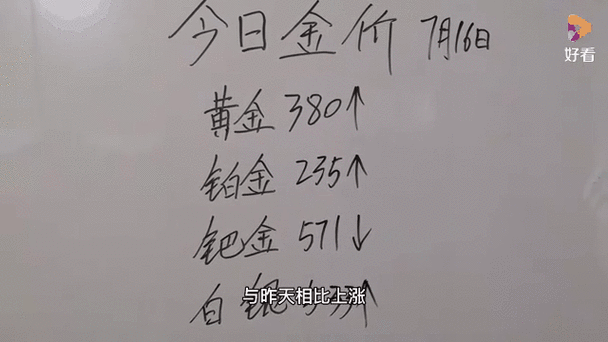 今日金价 7月16日
好看
黄金 380↑
铂金 235↑
钯金 571↓
与昨天相比上涨
白银 ↑